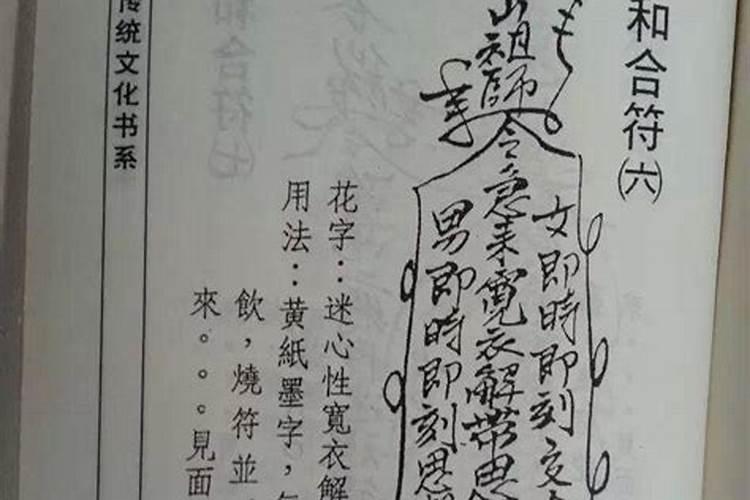 和合符㈥
山祖師
令急来寬衣解帶思
女即時即刻交
男即時即刻思
花字：迷心性寬衣解
用法：黄紙墨字，
飲，燒符並
來。。。見面
传统文化书系